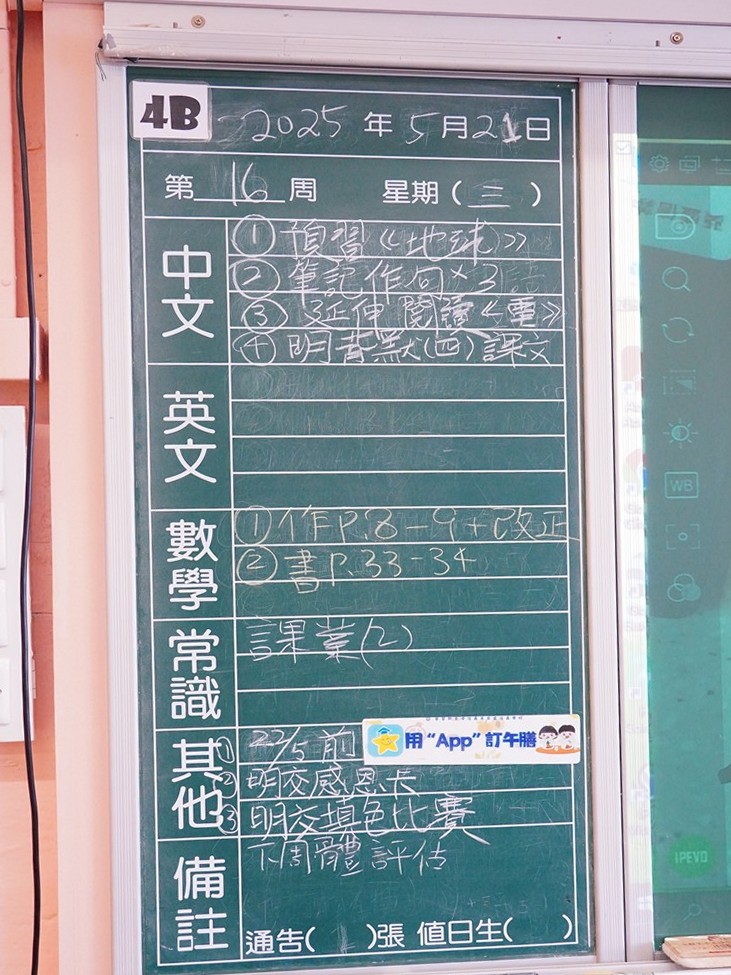 4B
2025 年 5 月 21 日
第 16 周 星期 ( 三 )
中文
① 預習《地球》
② 筆記作句×3
③ 延伸閱讀《重》
④ 明背默(四)課文
英文
數學
① 作P.8-9+改正
② 書P.33-34
常識
課業(2)
其他
① 22/5 前 用“App”訂午膳
② 明交感恩卡
③ 明交填色比賽
備註
下周體評估
通告( )張 值日生( )
WB
IPEVO